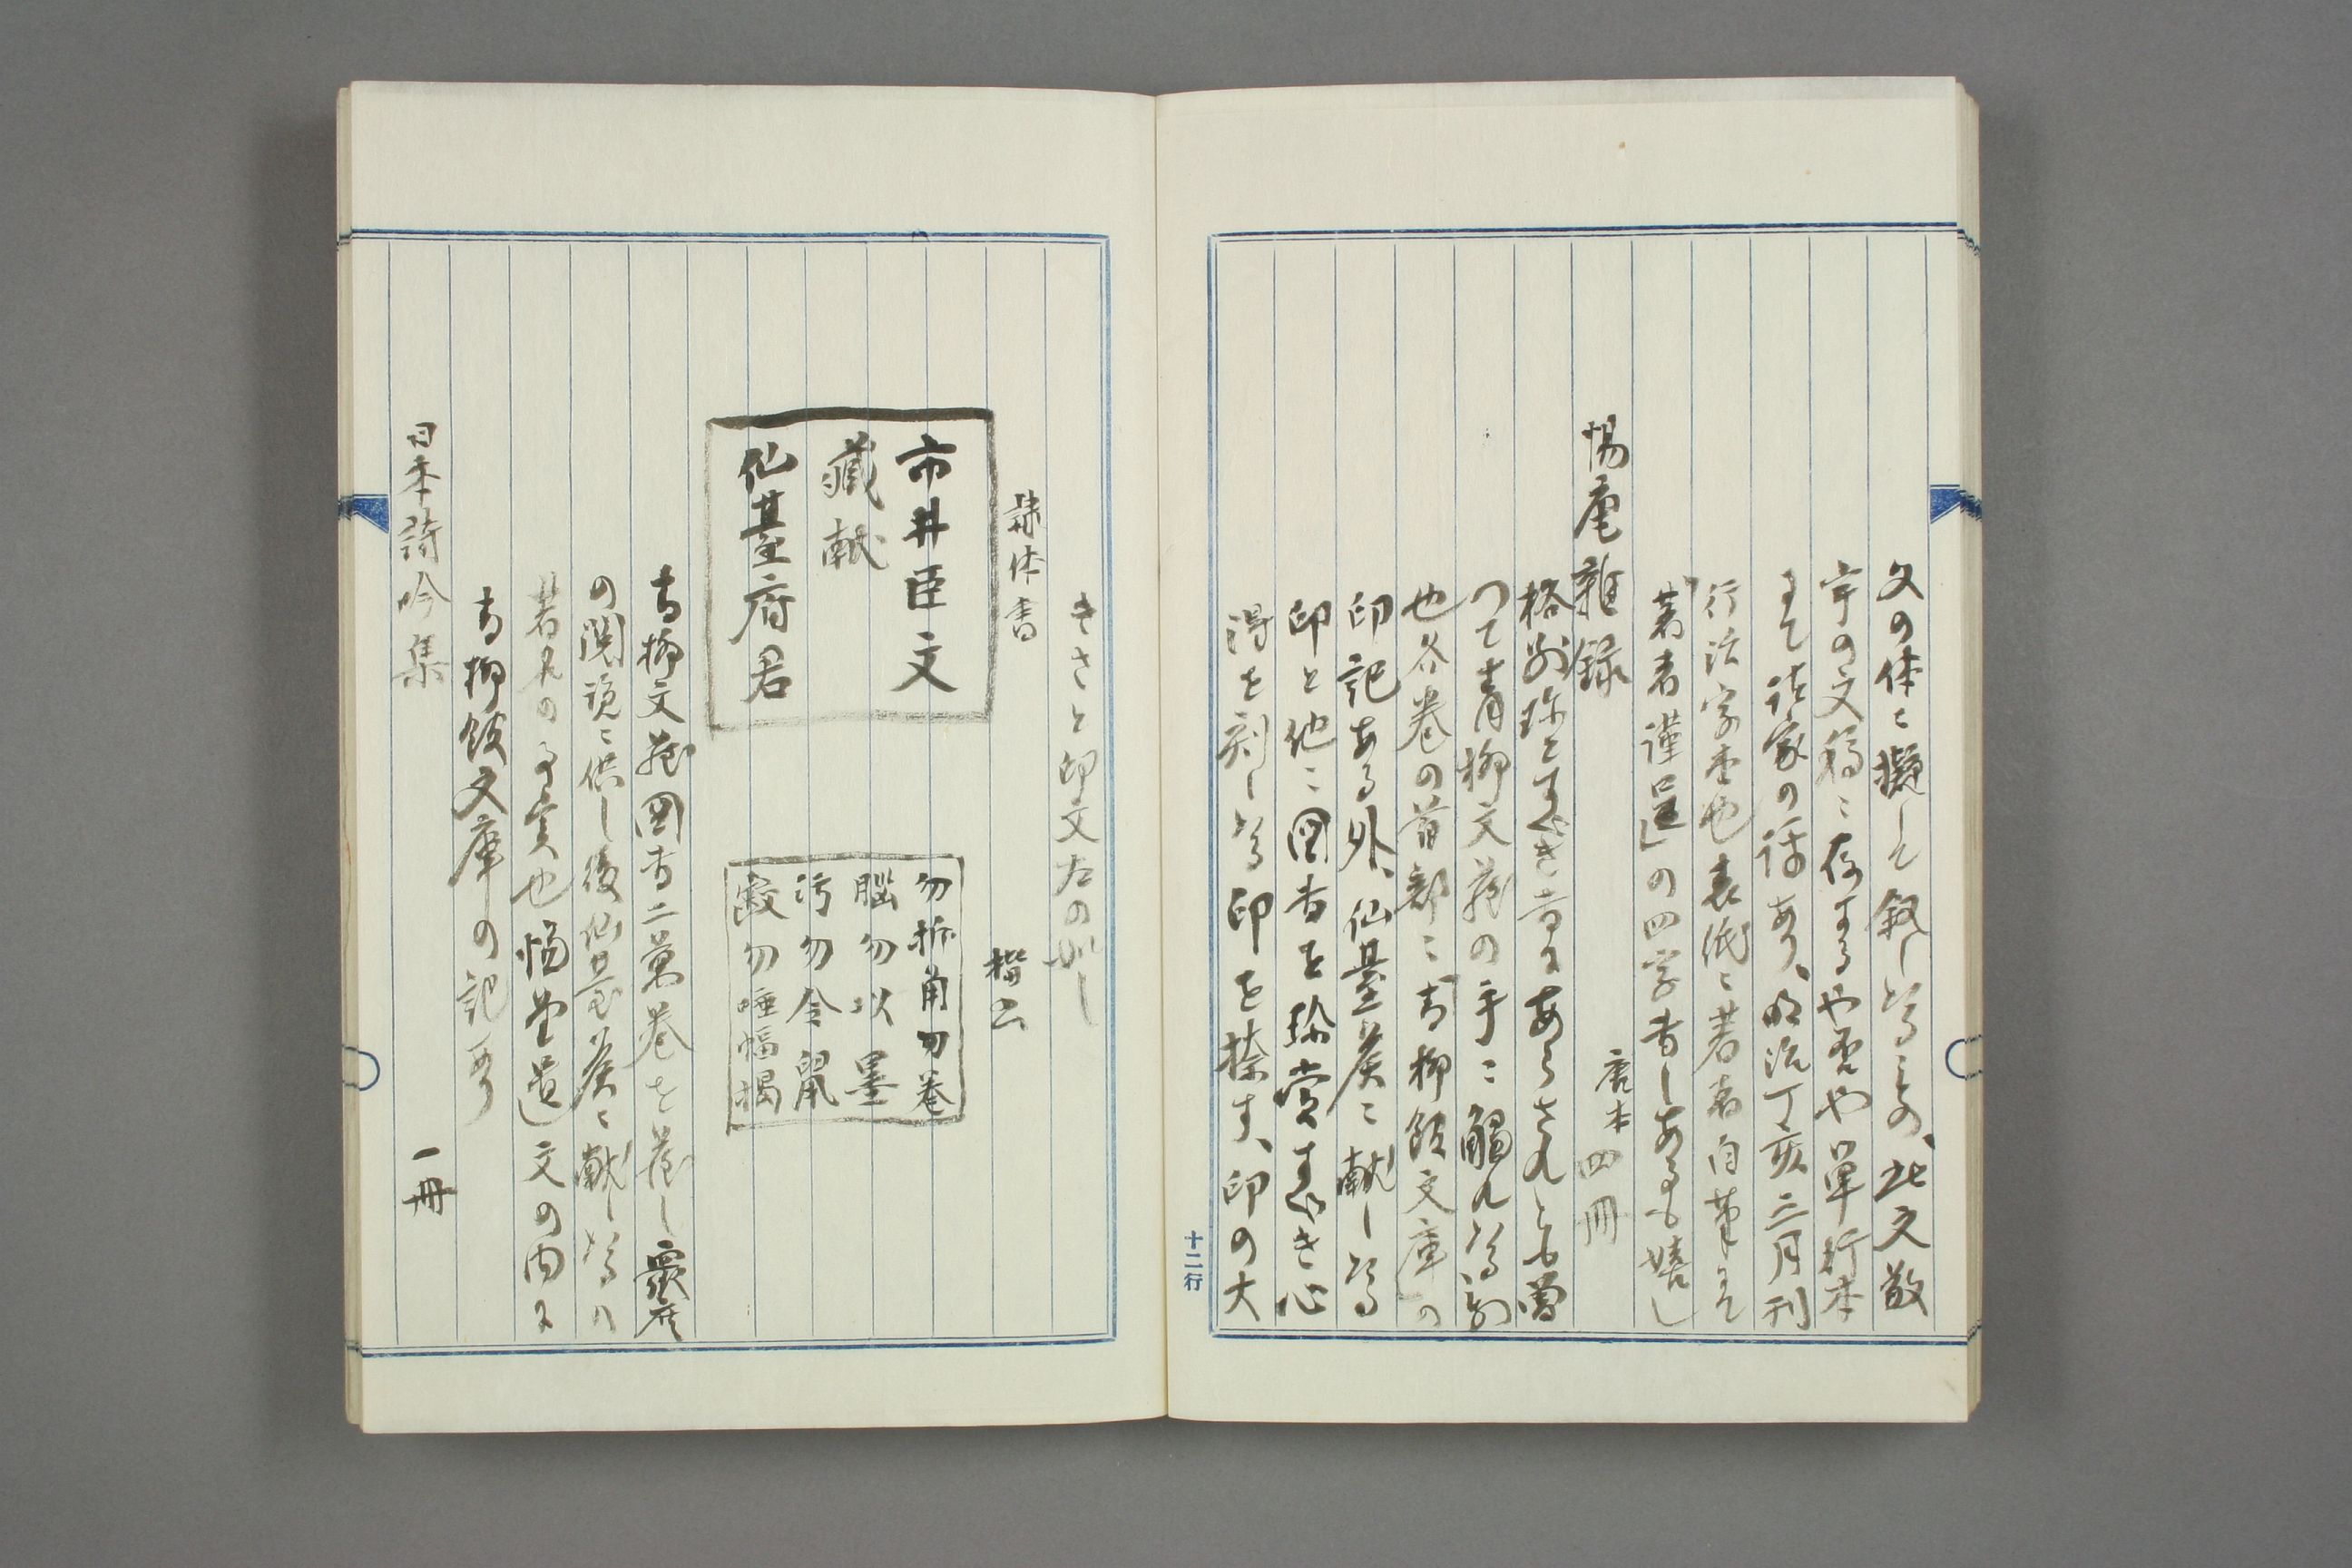 文の体に擬して叙しゐるもの、此文敬
宇の文稿に存するや否や単行本
まで諸家の評あり、明治丁亥三月刊
行活字本也表紙に著者自筆にて
「著者謹呈」の四字書しあるも嬉し
惕庵雑録
唐本四冊
格別珍とすべき書にあらざれとも曽
つて青柳文蔵の手に觸れゐる
也各巻の首部に「青柳館文庫」の
印記ある外、仙臺侯に献しゐる
印と他に図書を珍賞すべき心
得を刻しゐる印を捺す、印の大
十二行
きさと印文左の如し
隷体書
楷書
市井臣文
蔵献
仙臺府君
勿折角勿巻
脳勿以墨
汚勿令鼠
齧勿唾幅揭
青柳文蔵図書二萬巻を蔵し衆庶
の閲覧に供し後仙臺侯に献しゐるハ
著名の事実也惕堂遺文の内に
青柳館文庫の記あり
日本詩吟集
一冊